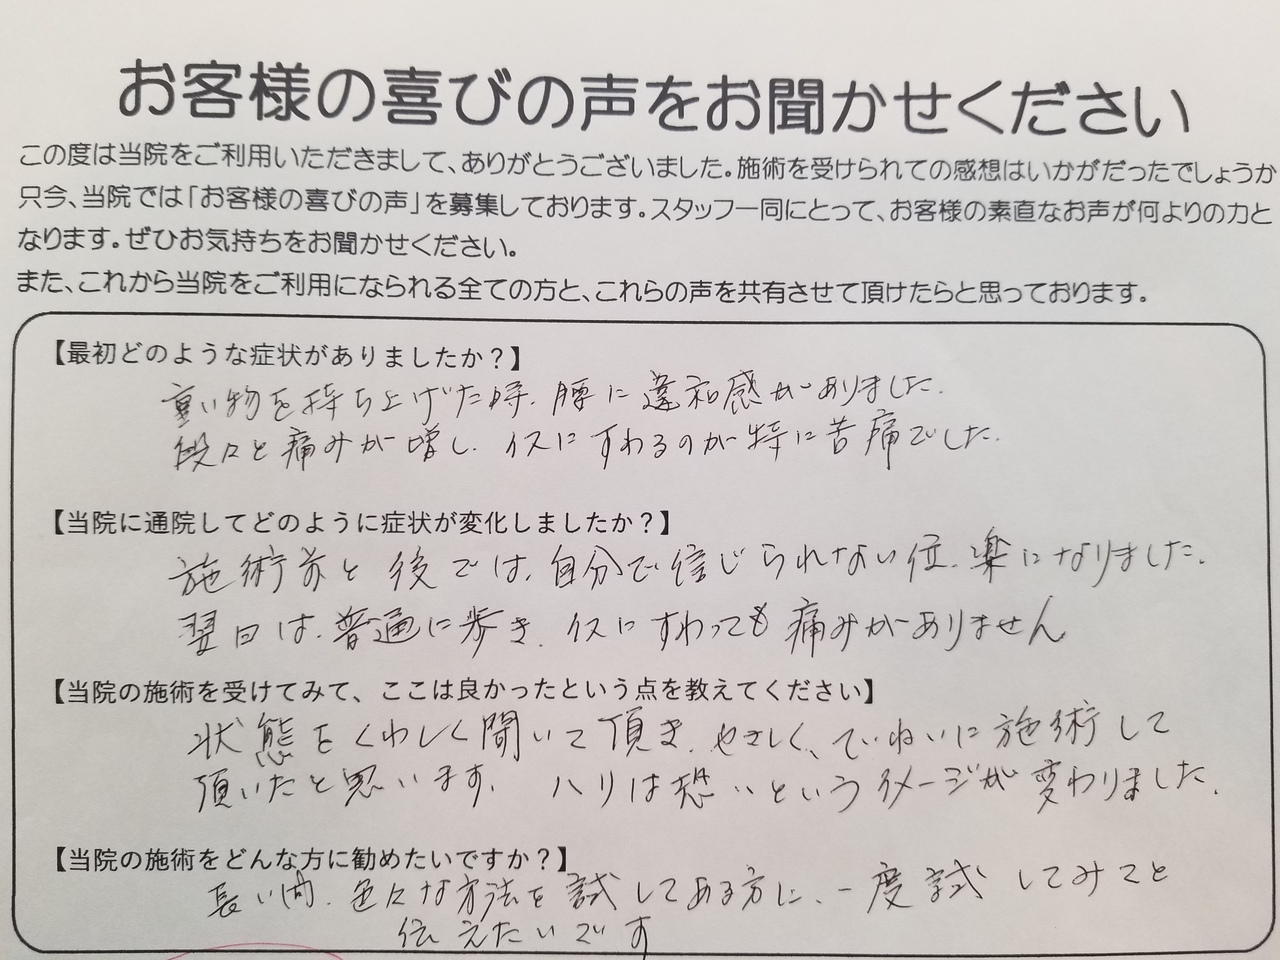 お客様の喜びの声をお聞かせください
この度は当院をご利用いただきまして、ありがとうございました。施術を受けられての感想はいかがだったでしょうか
只今、当院では「お客様の喜びの声」を募集しております。スタッフ一同にとって、お客様の素直なお声が何よりの力と
なります。ぜひお気持ちをお聞かせください。
また、これから当院をご利用になられる全ての方と、これらの声を共有させて頂けたらと思っております。
【最初どのような症状がありましたか？】
重い物を持ち上げた時、腰に違和感がありました。
段々と痛みが増し、イスにすわるのが特に苦痛でした。
【当院に通院してどのように症状が変化しましたか？】
施術前と後では、自分で信じられない位、楽になりました。
翌日は、普通に歩き、イスにすわっても痛みがありません
【当院の施術を受けてみて、ここは良かったという点を教えてください】
状態をくわしく聞いて頂き、やさしく、ていねいに施術して
頂いたと思います。ハリは恐いというイメージが変わりました。
【当院の施術をどんな方に勧めたいですか？】
長い間、色々な方法を試してある方に、一度試してみてと
伝えたいです